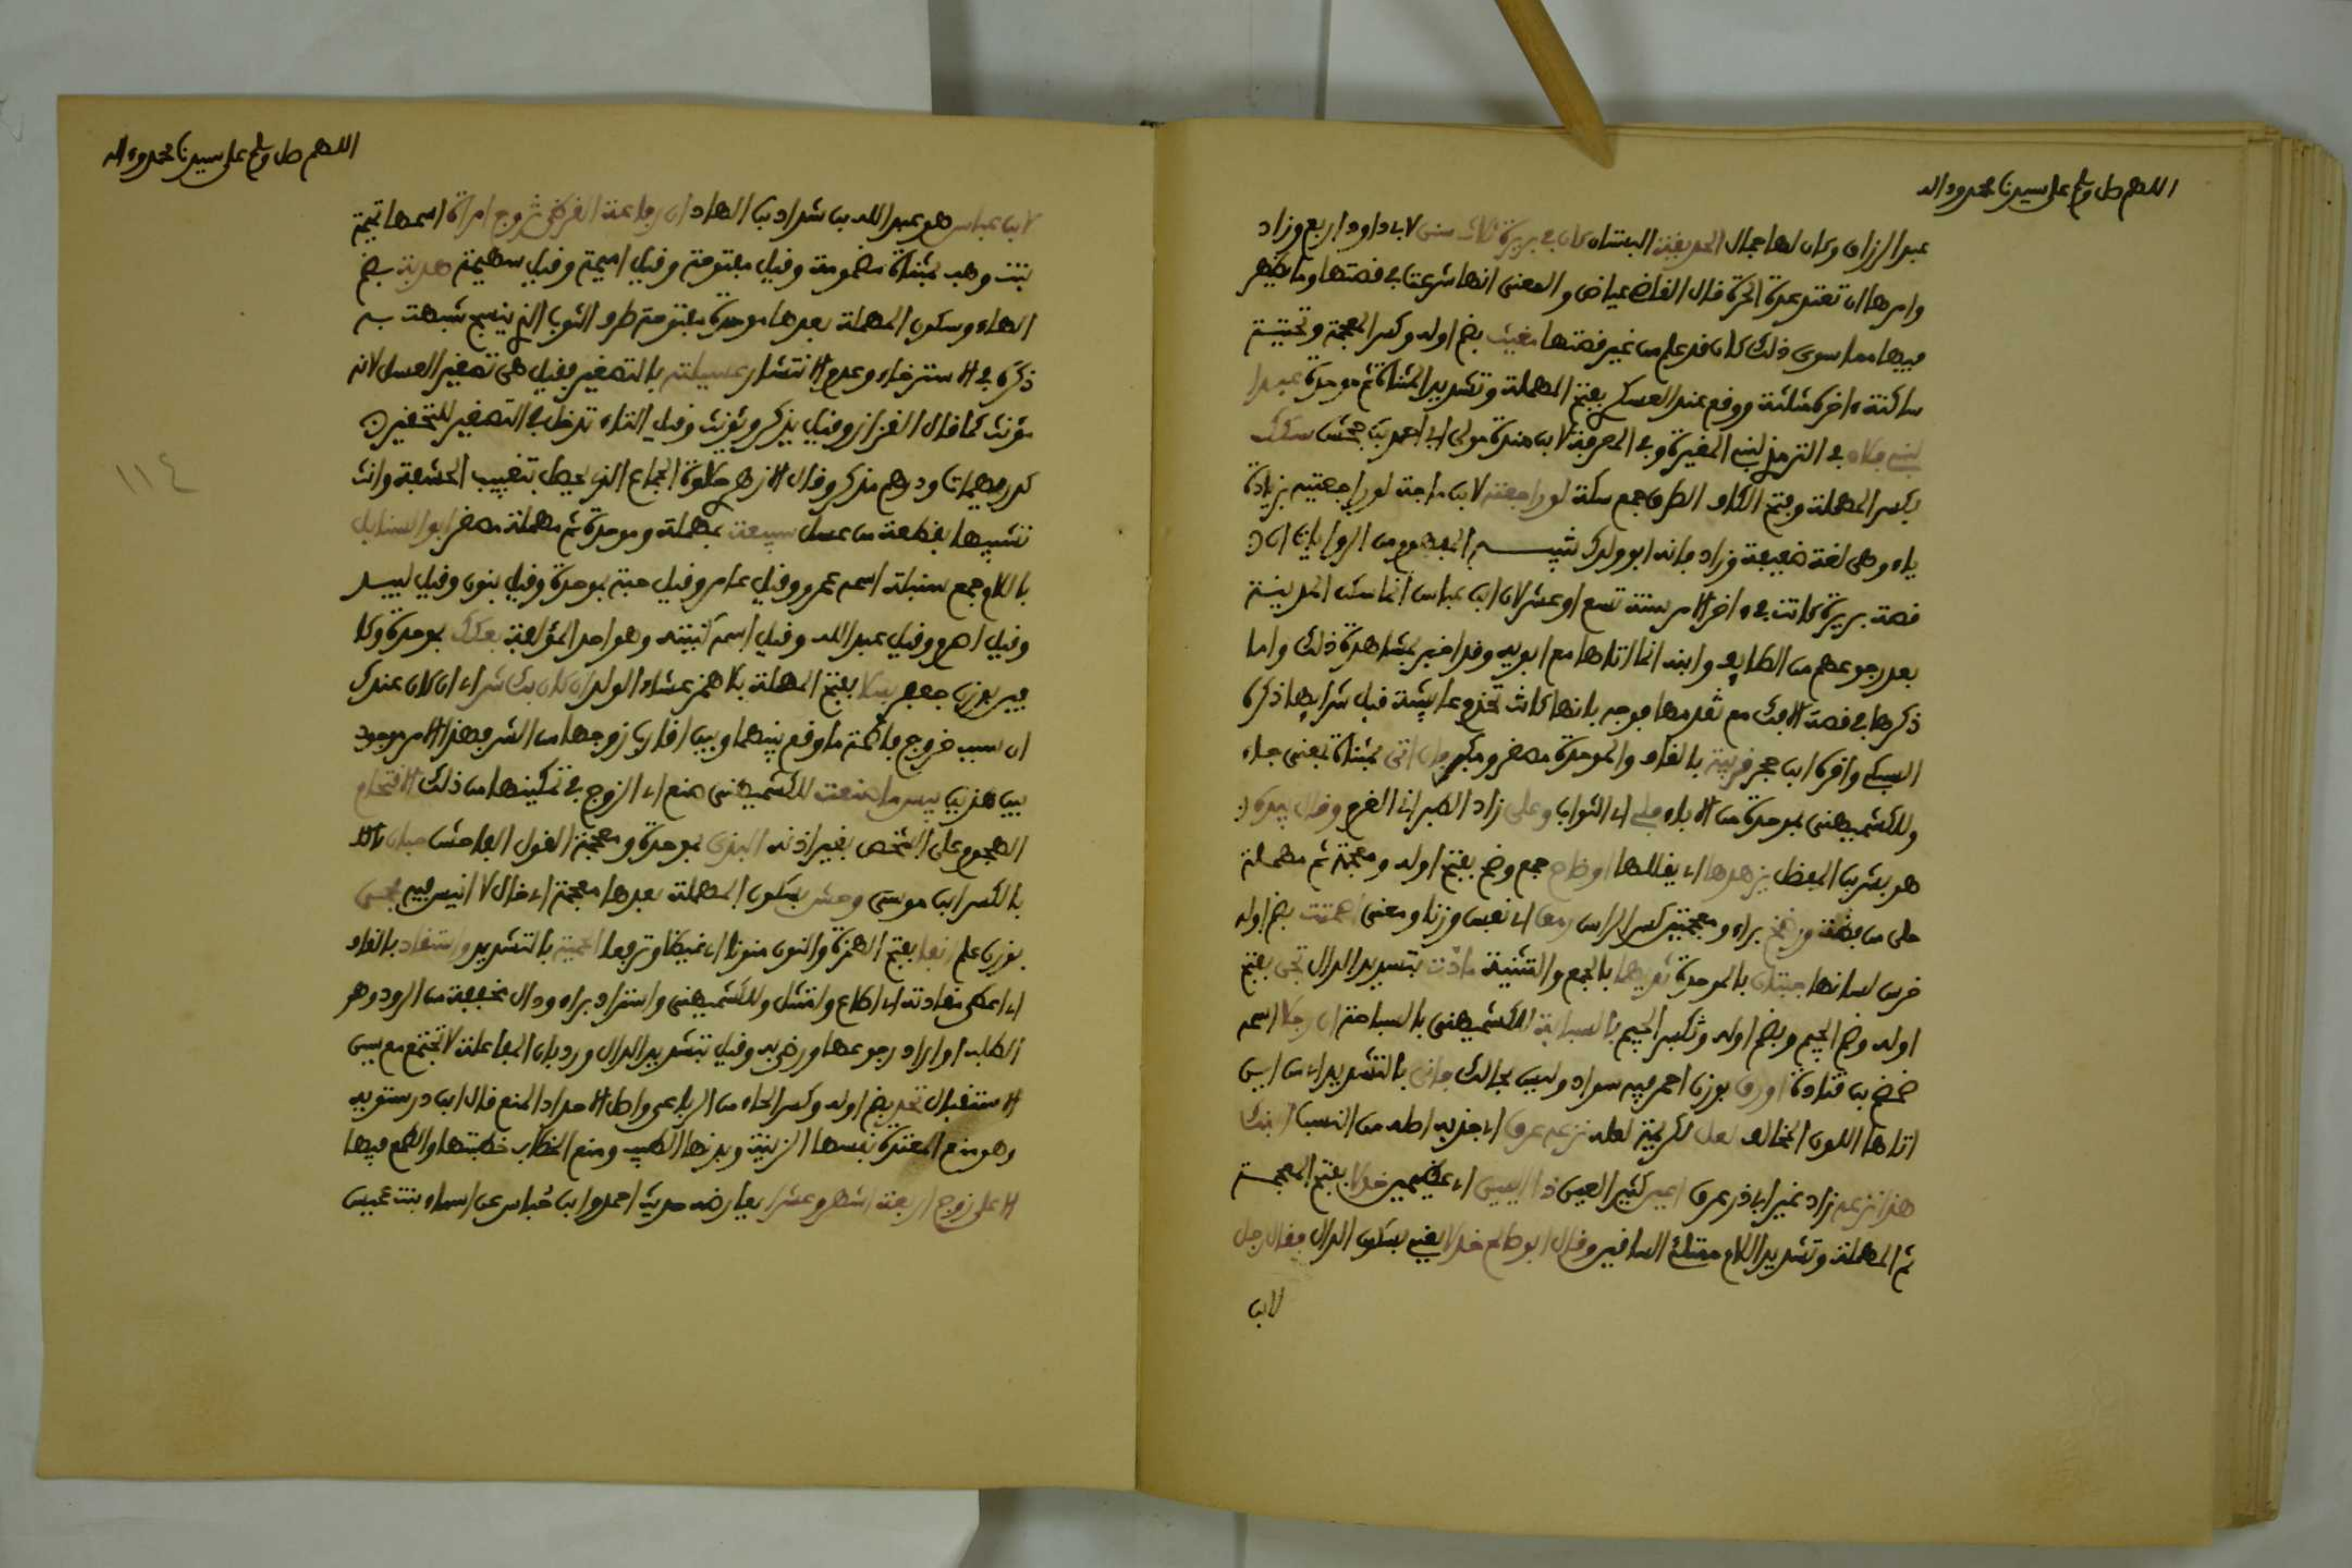 اللهم صل وسلم على سيدنا محمد وءاله
عبد الرزاق وكان لها جمال الحديقة البستان كان في بريرة ثلاث سنن لابي داود اربع وزاد
وامرها ان تعتد عدة الحرة قال القاضي عياض والمعنى انها شرعت في قصتها وما يظهر
فيها مما سوى ذلك كان قد علم من غير قصتها مغيث بضم اوله وكسر المعجمة وتحتية
ساكنة ءاخره مثلثة ووقع عند العسكري بفتح المهملة وتشديد المثناة ثم موحدة عبدا
لبني فلان في الترمذي لبني المغيرة وفي المعرفة لابن مندة مولى ابي احمد بن جحش سكك
بكسر المهملة وفتح الكاف الطرق جمع سكة لو راجعته لابن ماجة لو راجعتيه بزيادة
ياء وهي لغة ضعيفة وزاد فانه ابو ولدك تنبيه المفهوم من الروايات ان
قصة بريرة كانت في ءاخر الامر سنة تسع او عشر لان ابن عباس انما سكن المدينة
بعد رجوعهم من الطائف وابنه انما اتاها مع ابويه وقد اخبر بمشاهدة ذلك واما
ذكرها في قصة الافك مع تقدمها فوجه بانها كانت تخدم عايشة قبل شرايها ذكره
السبكي واقره ابن حجر قريبة بالقاف والموحدة مصغر ومكبر فان اتى بمثناة بمعنى جاء
وللكشميهني بموحدة من الاباء فلي اي الثواب وعلي زاد الطبراني الغرم وقال بيده
هو بشر بن المفضل يزهدها اي يقللها اوضاح جمع وضح بفتح اوله ومعجمة ثم مهملة
حلي من فضة ورضخ براء ومعجمتين كسر الراس رمقا اي نفس وزنا ومعنى اصمتت بضم اوله
خرس لسانها جبتان بالموحدة ثدييهما بالجمع والتثنية مادت بتشديد الدال تجن بفتح
اوله وضم الجيم وبضم اوله وتكسر الجيم بالسبابة للكشميهني بالسباحة ان رجلا اسمه
ضمضم بن قتادة اورق بوزن احمر فيه سواد وليس بحالك فانى بالتشديد اي من اين
اتاها اللون المخالف لعل لكريمة لعله نزعه عرق اي جذبه اصله من النسب ابنك
هذا نزعه زاد غير ابي ذر عرق اعين كثير العين ذا اليتين اي عظيمين خدلا بفتح المعجمة
ثم المهملة وتشديد اللام ممتلئ الساقين وقال ابو صالح خدلا يعني بسكون الدال فقال رجل
لابن
اللهم صل وسلم على سيدنا محمد وءاله
لابن عباس هو عبد الله بن شداد بن الهاد ان رفاعة القرظي تزوج امراة اسمها تميمة
بنت وهب بمثناة مضمومة وقيل مفتوحة وقيل اميمة وقيل سهيمة هدبة بضم
الهاء وسكون المهملة بعدها موحدة مفتوحة طرف الثوب الذي ينسج شبهت به
ذكره في الاسترخاء وعدم الانتشار عسيلته بالتصغير فقيل هي تصغير العسل لانه
مؤنث كما قال القزاز وقيل يذكر ويؤنث وقيل التاء تدخل في التصغير للتحقير
كدريهمات ودرهم مذكر وقال الازهري حلاوة الجماع الذي يحصل بتغييب الحشفة وانث
تشبيها بقطعة من عسل سبيعة بمهملة وموحدة ثم مهملة مصغر ابو السنابل
باللام جمع سنبلة اسمه عمرو وقيل عامر وقيل حبة بموحدة وقيل بنون وقيل لبيد
وقيل اصرم وقيل عبد الله وقيل اسمه كنيته وهو احد المؤلفة بعكك بموحدة وكا
فين بوزن جعفر بسلا بفتح المهملة بلا همز غشاء الولد ان كان بك شر اي ان كان عندك
ان سبب خروج فاطمة ما وقع بينها وبين اقارب زوجها من الشر فهذا الامر موجود
بين هذين بيس ما صنعت للكشميهني صنع اي الزوج في تمكينها من ذلك الاقتحام
الهجوم على الشخص بغير اذنه البذي بموحدة ومعجمة القول الفاحش حبان
بالكسر ابن موسى وحش بسكون المهملة بعدها معجمة اي خال لا انيس فيه فحمي
بوزن علم انفا بفتح الهمزة والنون منونا اي غيظا وترفعا الحمية بالتشديد واستقاد بالقاف
اي اعطى مقادته اي اطاع وامتثل وللكشميهني واستراد براء ودال مخففة من الرود وهو
الطلب او اراد رجوعها ورضي به وقيل بتشديد الدال ورد بان المفاعلة لا تجتمع مع سين
الاستقبال تحد بضم اوله وكسر الحاء من الرباعي واصل الاحداد المنع قال ابن درستويه
وهو منع المعتدة نفسها الزينة وبدنها الطيب ومنع الخطاب خطبتها والطمع فيها
الا على زوج اربعة اشهر وعشرا يعارضه حديث احمد وابن حباس عن اسماء بنت عميس
١١٤